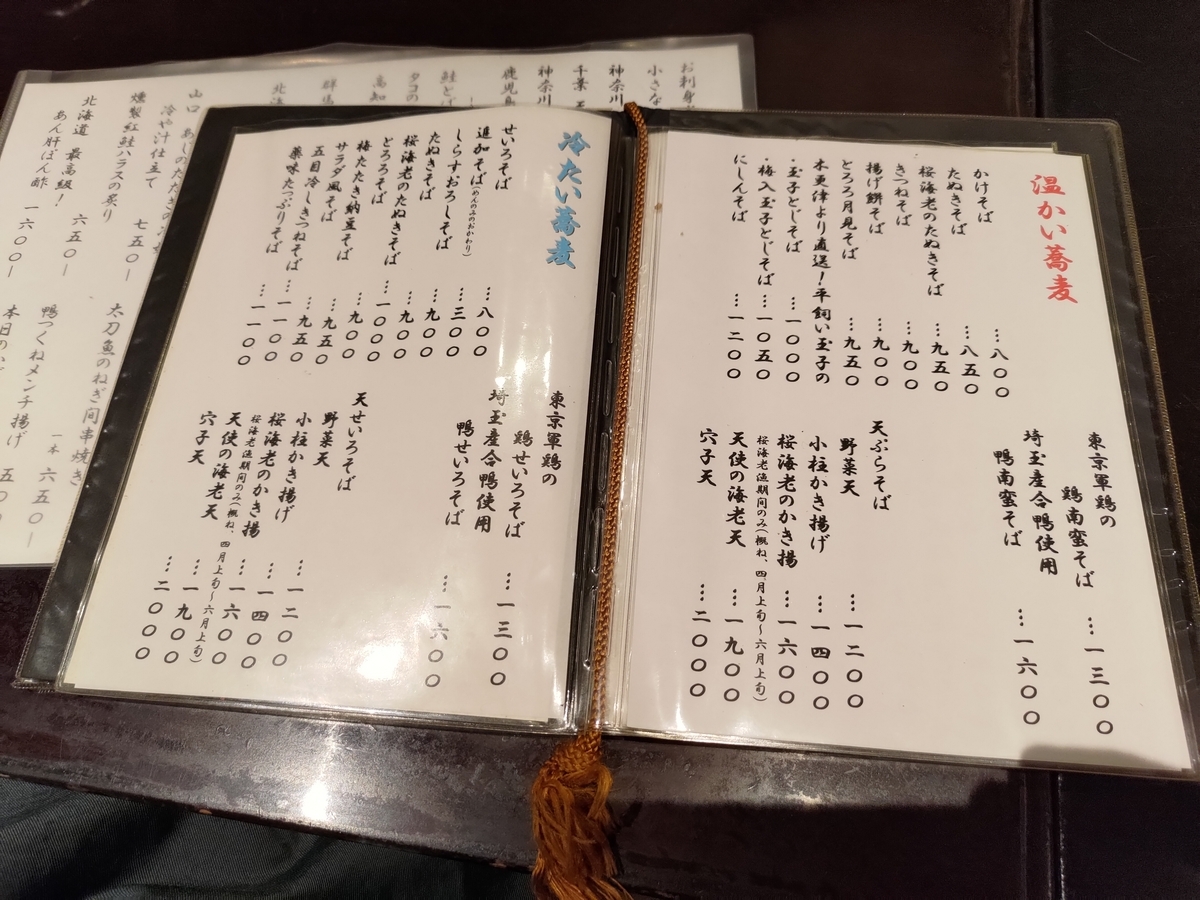 温かい蕎麦
かけそば …八〇〇
たぬきそば …八五〇
桜海老のたぬきそば …九五〇
きつねそば …九〇〇
揚げ餅そば …九〇〇
とろろ月見そば …九五〇
木更津より直送!平飼い玉子の
・玉子とじそば …一〇〇〇
・梅入玉子とじそば …一〇五〇
にしんそば …一二〇〇
東京軍鶏の
鶏南蛮そば …一三〇〇
埼玉産合鴨使用
鴨南蛮そば …一六〇〇
天ぷらそば
野菜天 …一二〇〇
小柱かき揚げ …一四〇〇
桜海老のかき揚 …一六〇〇
桜海老漁期間のみ(概ね、四月上旬〜六月上旬)
天使の海老天 …一九〇〇
穴子天 …二〇〇〇
冷たい蕎麦
せいろそば …八〇〇
追加そば(めんのみのおかわり) …三〇〇
しらすおろしそば …九〇〇
たぬきそば …九〇〇
桜海老のたぬきそば …一〇〇〇
とろろそば …九〇〇
梅たたき納豆そば …九五〇
サラダ風そば …九五〇
五目冷しきつねそば …一一〇〇
薬味たっぷりそば …一一〇〇
東京軍鶏の
鶏せいろそば …一三〇〇
埼玉産合鴨使用
鴨せいろそば …一六〇〇
天せいろそば
野菜天 …一二〇〇
小柱かき揚げ …一四〇〇
桜海老のかき揚 …一六〇〇
桜海老漁期間のみ(概ね、四月上旬〜六月上旬)
天使の海老天 …一九〇〇
穴子天 …二〇〇〇
お刺身
小さな
神奈川
千葉
神奈川
鹿児島
鮭と
タコの
高知
群馬
北海
山口 あじのたたきの
冷や汁仕立て 七五〇ー
燻製紅鮭ハラスの炙り
北海道 最高級! 六五〇ー
あん肝ぽん酢 一六〇〇ー
太刀魚のねぎ間串焼き
一本 六五〇ー
鴨つくねメンチ揚げ 五
本日の